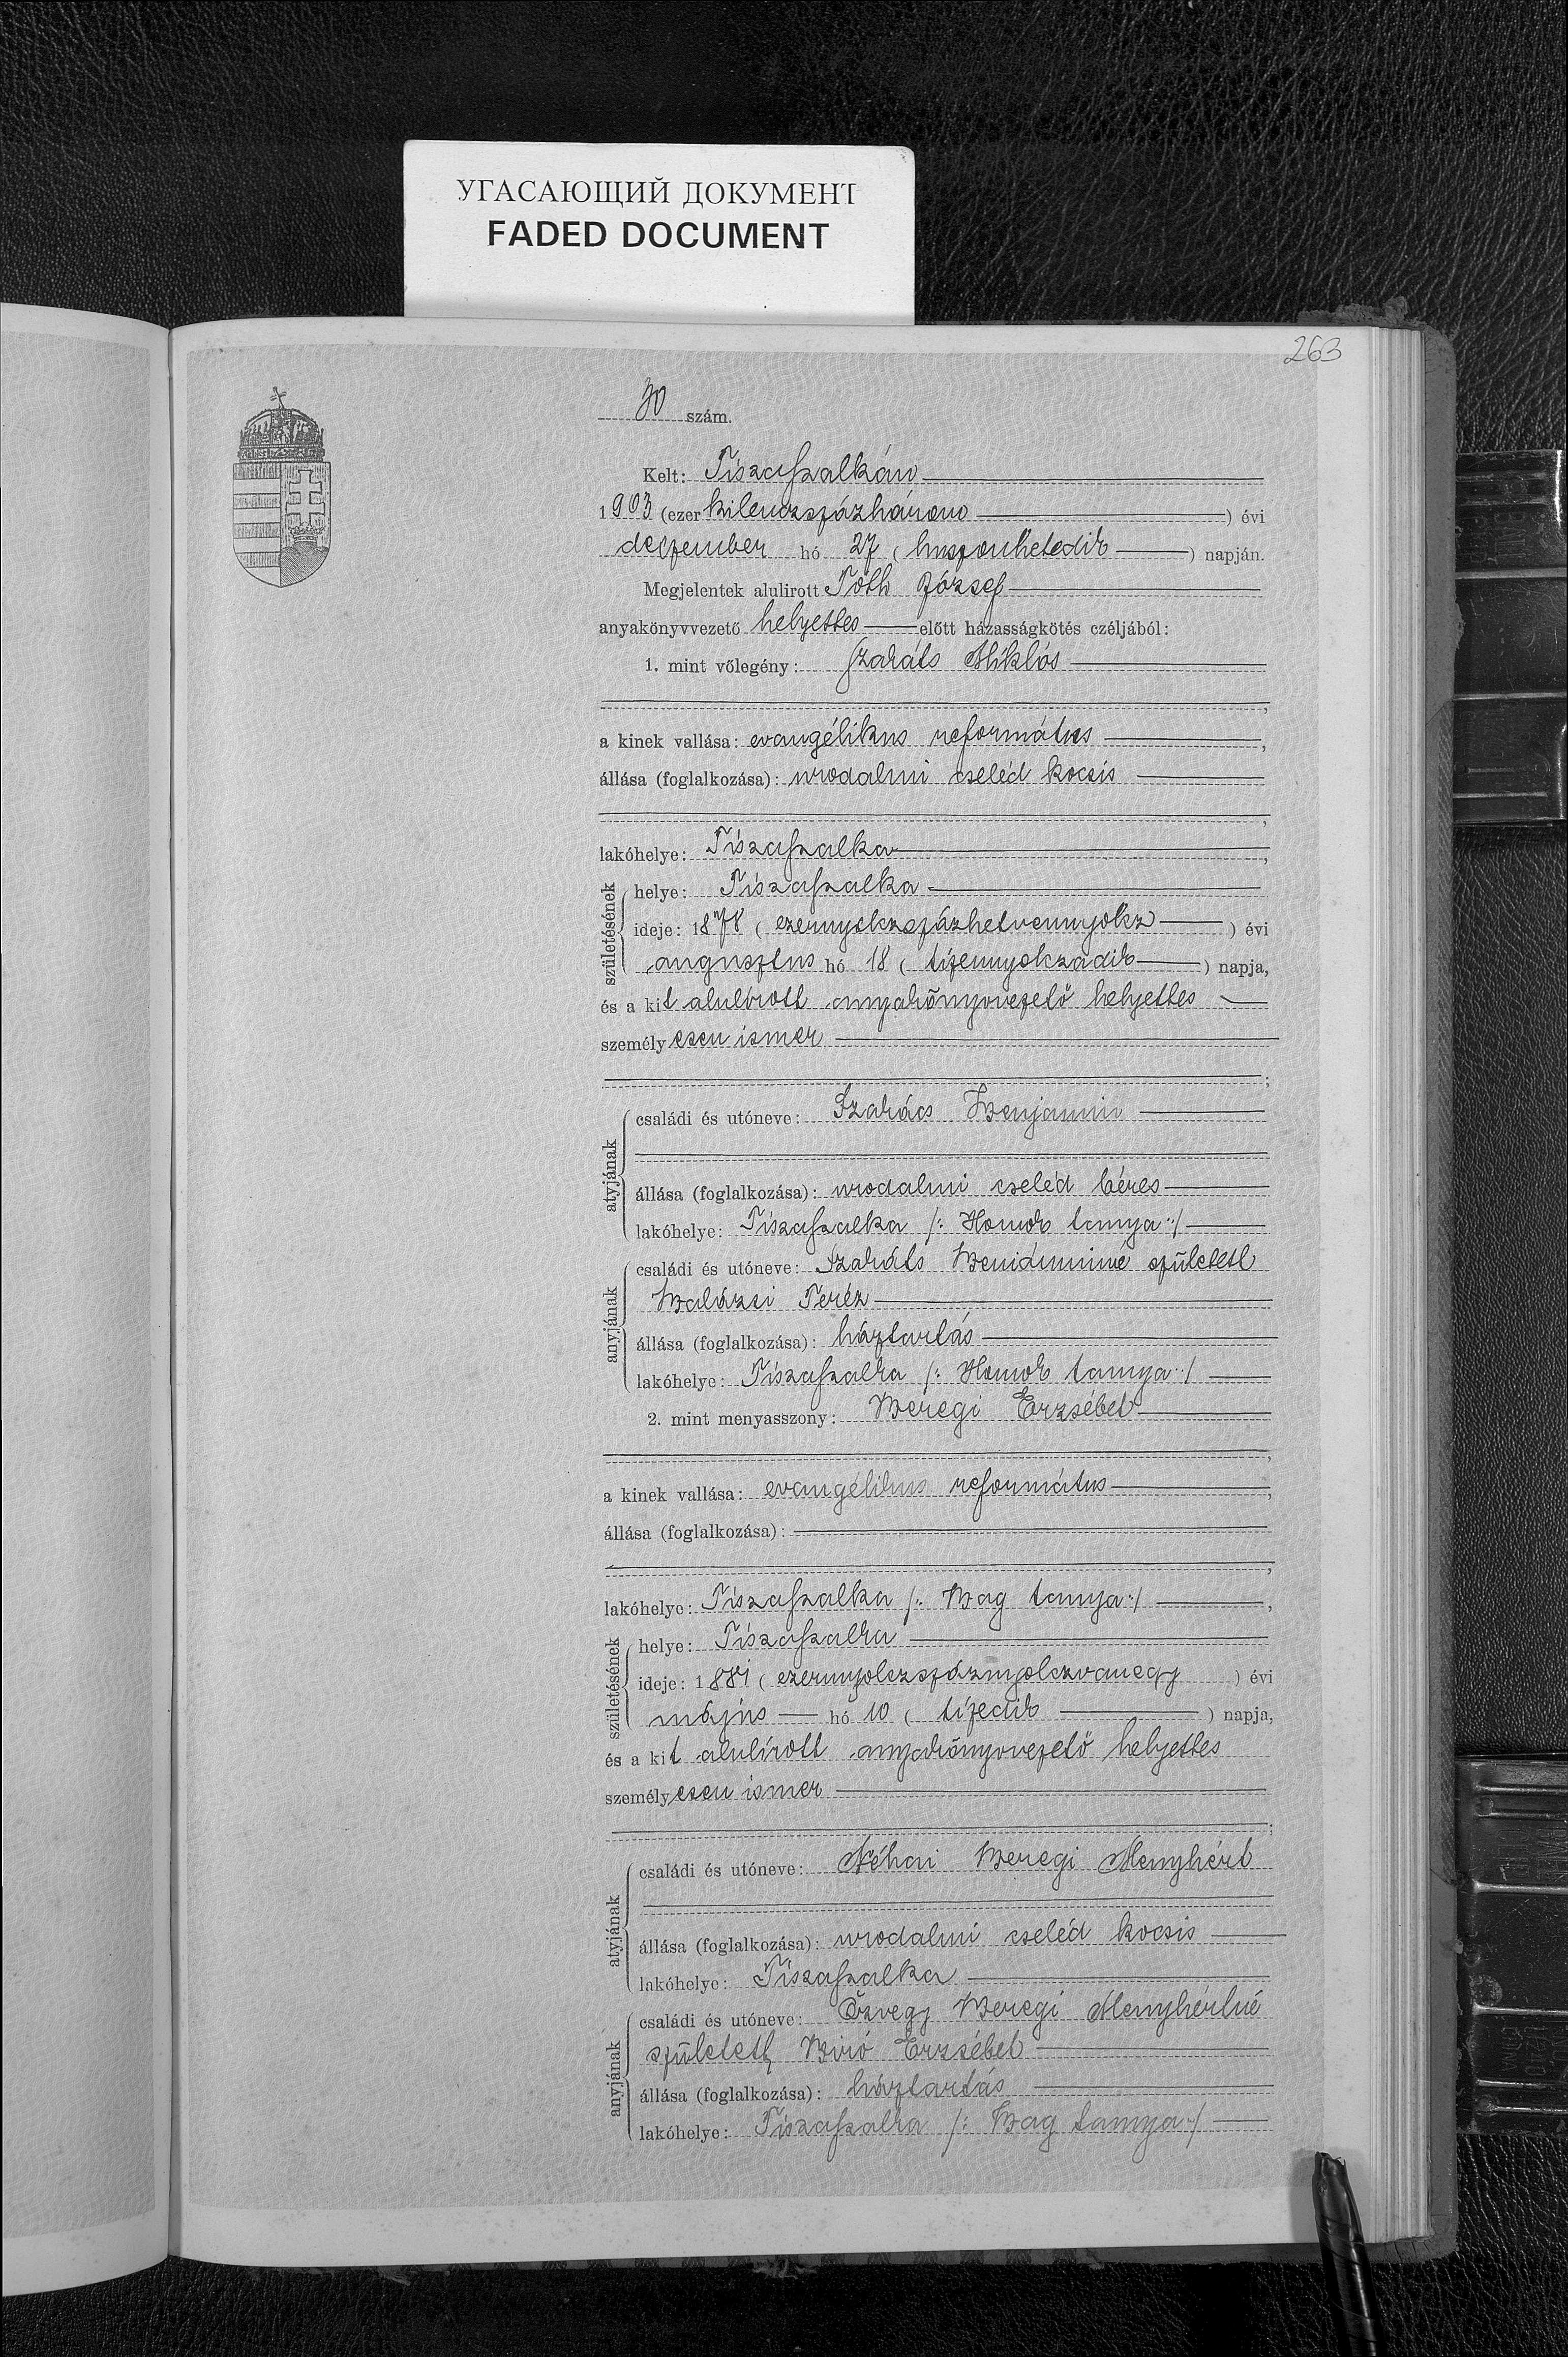 УГАСАЮЩИЙ ДОКУМЕНТ
FADED DOCUMENT
263
30 szám.
Kelt: Tiszaszalkán
1903 (ezer kilenczszázhárom) évi
deczember hó 27 (huszonhetedik) napján.
Megjelentek alulirott Tóth József
anyakönyvvezető helyettes előtt házasságkötés czéljából:
1. mint vőlegény: Szakáts Miklós
a kinek vallása: evangélikus református
állása (foglalkozása): urodalmi cseléd kocsis
lakóhelye: Tiszaszalka
születésének
helye: Tiszaszalka
ideje: 1878 (ezernyolczszázhetvennyolcz) évi
augusztus hó 18 (tizennyolczadik) napja,
és a kit alulírott anyakönyvvezető helyettes
személyesen ismer
atyjának
családi és utóneve: Szakács Benjamin
állása (foglalkozása): urodalmi cseléd béres
lakóhelye: Tiszaszalka /: Homok tanya :/
anyjának
családi és utóneve: Szakáts Beniáminné született
Balázsi Teréz
állása (foglalkozása): háztartás
lakóhelye: Tiszaszalka /: Homok tanya :/
2. mint menyasszony: Beregi Erzsébet
a kinek vallása: evangélikus református
állása (foglalkozása):
lakóhelye: Tiszaszalka /: Bag tanya :/
születésének
helye: Tiszaszalka
ideje: 1881 (ezernyolczszáznyolczvanegy) évi
május hó 10 (tizedik) napja,
és a kit alulírott anyakönyvvezető helyettes
személyesen ismer
atyjának
családi és utóneve: Néhai Beregi Menyhért
állása (foglalkozása): urodalmi cseléd kocsis
lakóhelye: Tiszaszalka
anyjának
családi és utóneve: Özvegy Beregi Menyhértné
született Biró Erzsébet
állása (foglalkozása): háztartás
lakóhelye: Tiszaszalka /: Bag tanya :/